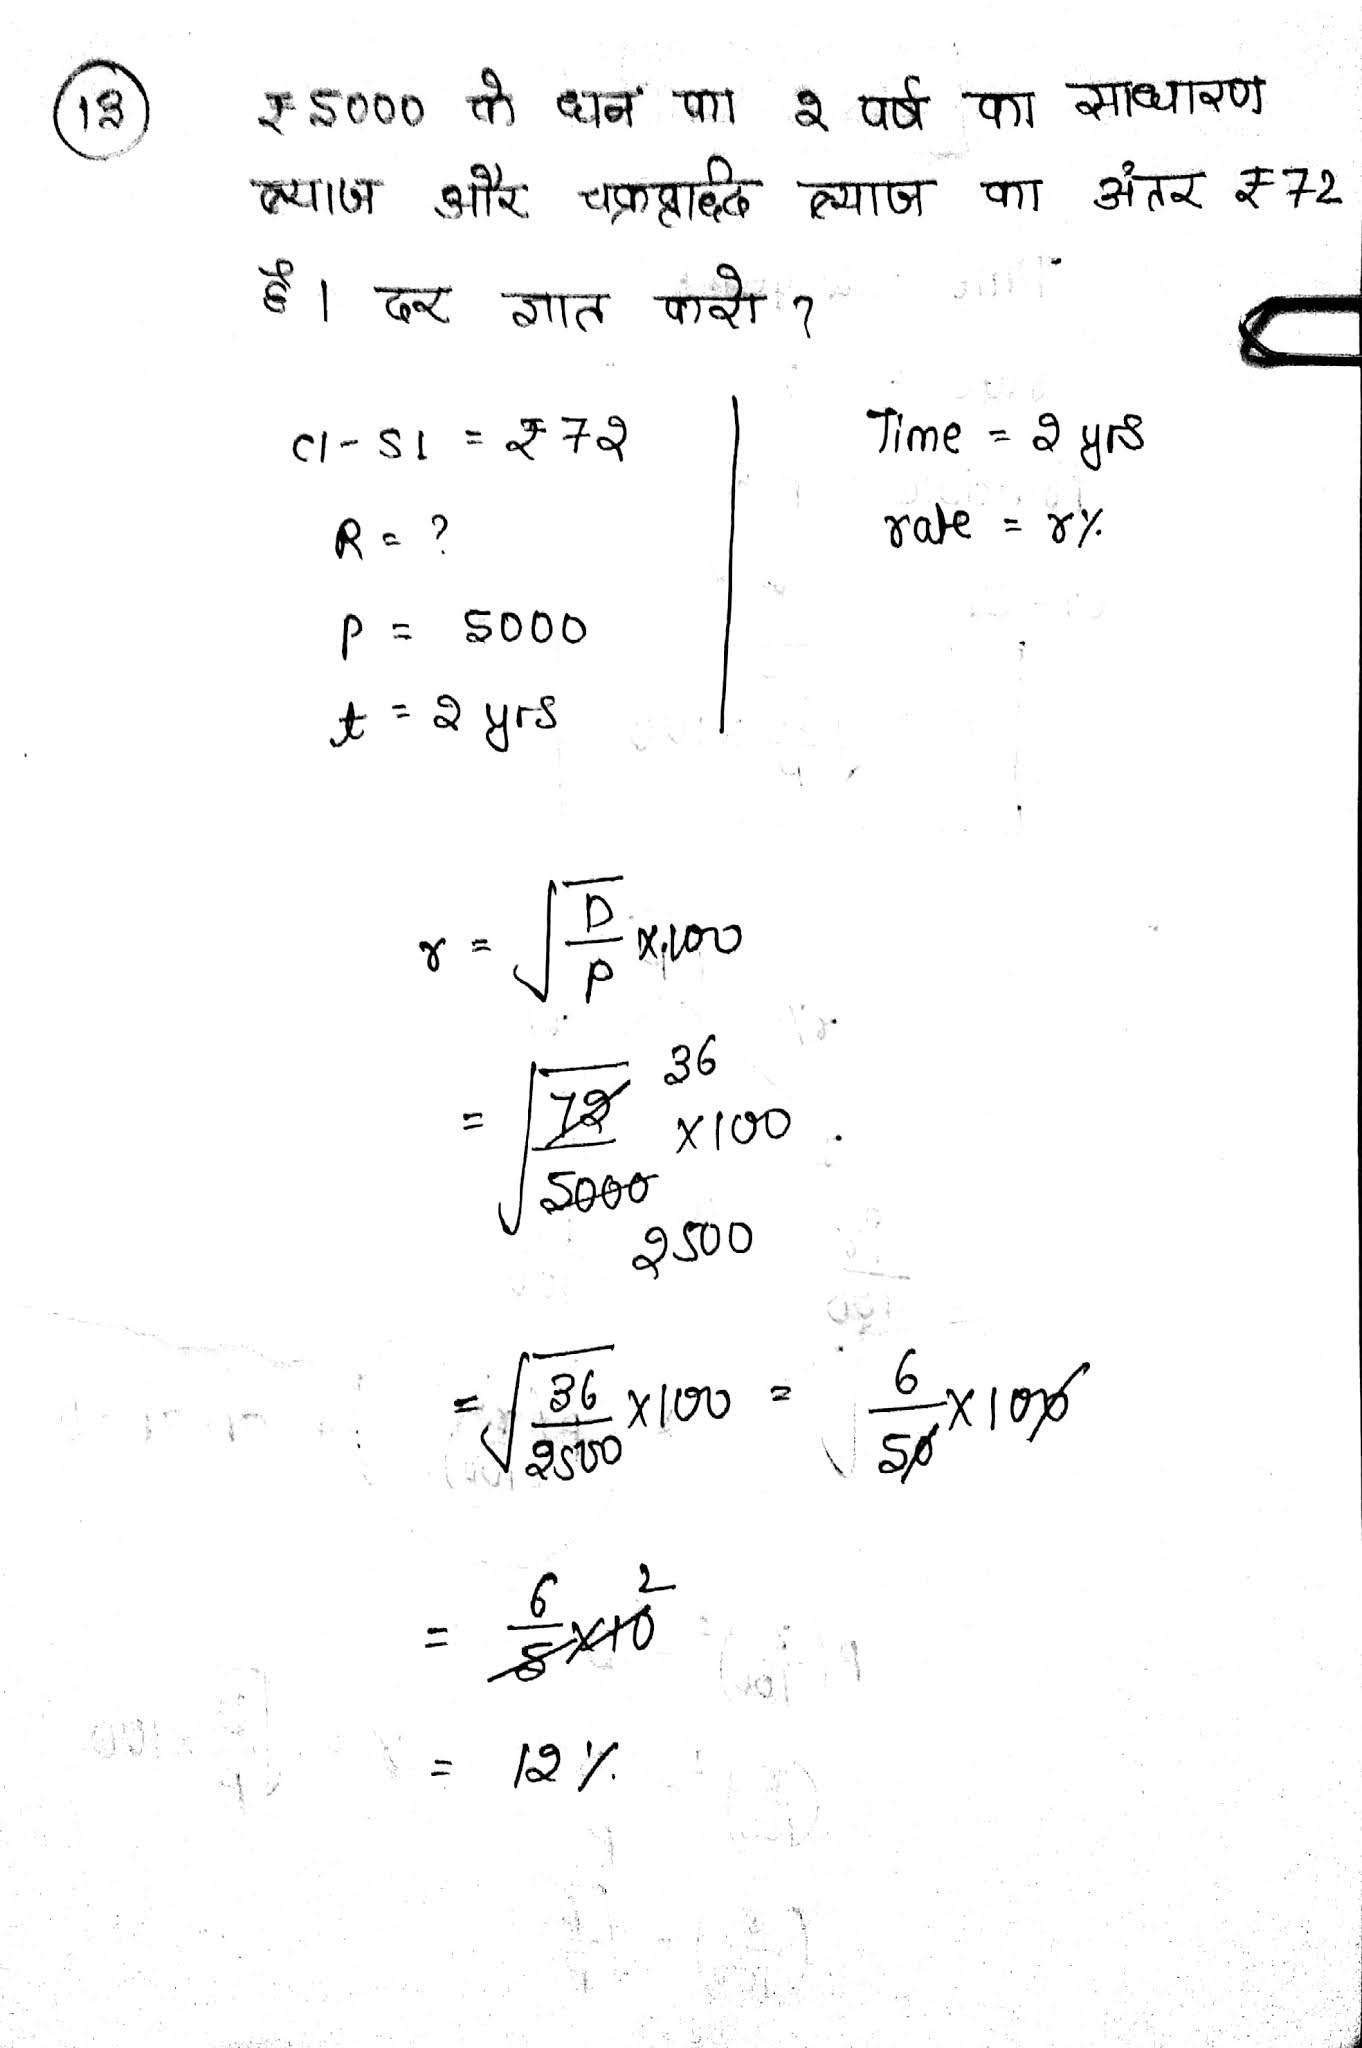 13
₹5000 के धन का 2 वर्ष का साधारण
ब्याज और चक्रवृद्धि ब्याज का अंतर ₹72
है। दर ज्ञात करो?
CI - SI = ₹72
R = ?
P = 5000
t = 2 yrs
Time = 2 yrs
rate = r%
r = √(D/P) × 100
= √(72/5000) × 100
36
2500
= √(36/2500) × 100 = 6/50 × 100
= 6/5 × 10 2
= 12%